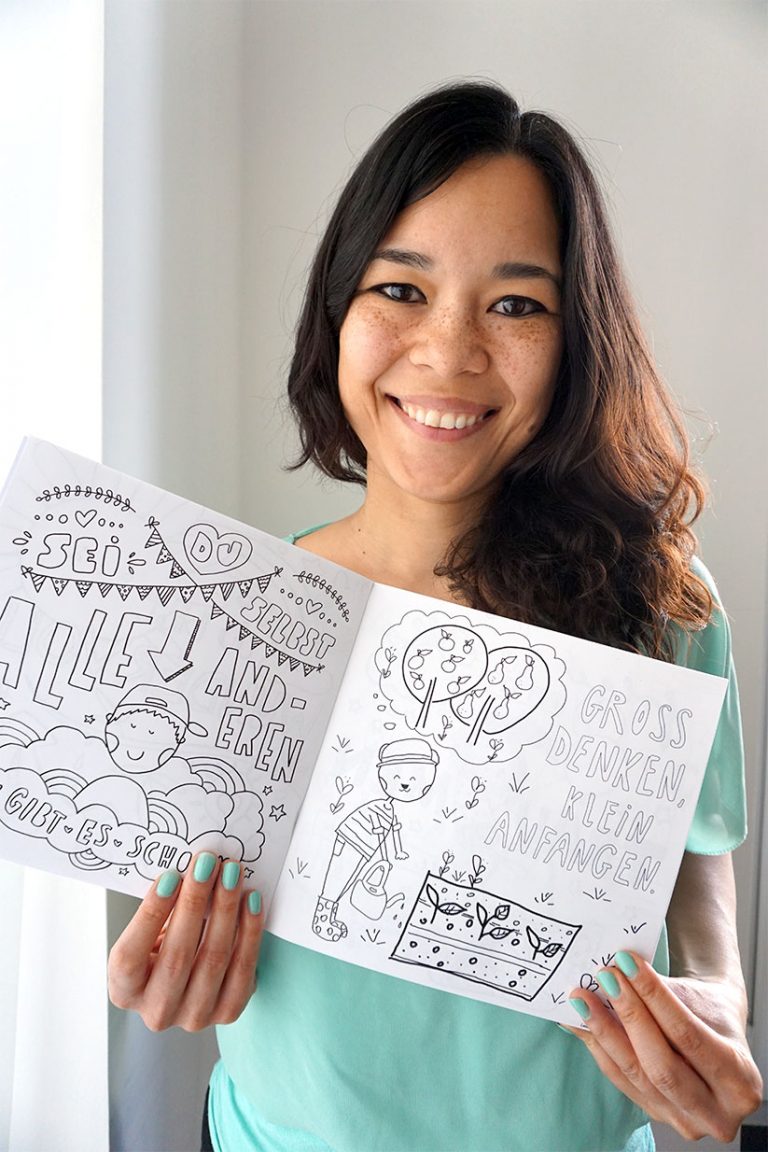 SEI DU
SELBST
ALLE AND-
EREN
GIBT ES SCHO
GROSS
DENKEN,
KLEIN
ANFANGEN.